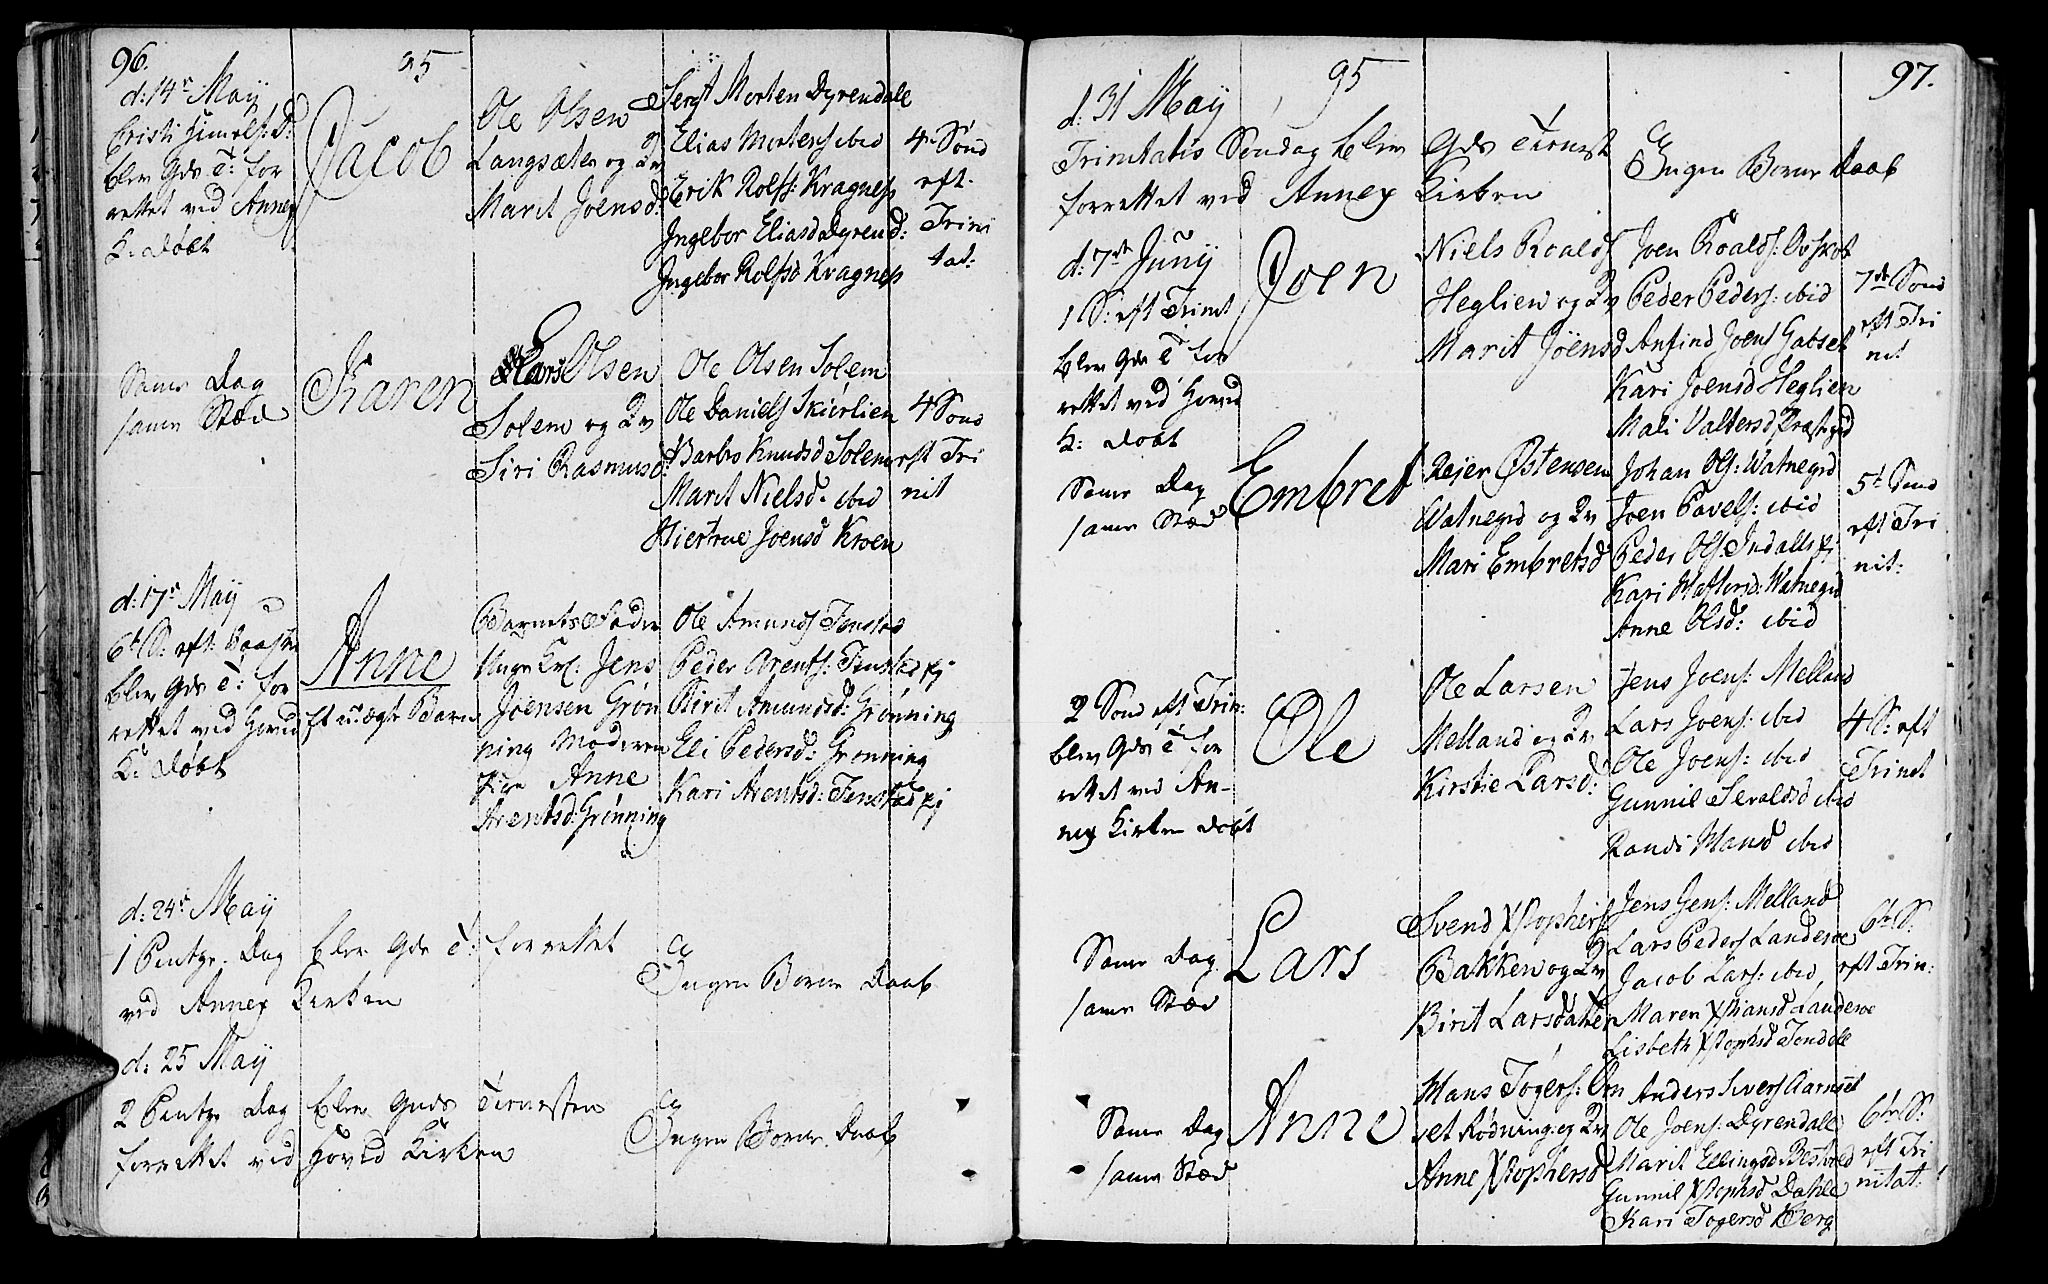 96.
95
d: 14de May
Cristi Himelf: D:
blev Gds T: for
rettet ved Annex
K: døbt
Jacob
Ole Olsen
Langsæter og Qv
Marit Joensd:
Sergt Morten Dyrendale
Elias Mortens ibid
Erik Rolfs: Kragness
Ingebor Eliasd Dyrend:
Ingebor Rolfsd Kragness
4de Sønd
eft.
Trini
tat:
Same Dag
same Stæd
Karen
Lars Olsen
Solem og Qv
Siri Rasmusd:
Ole Olsen Solem
Ole Daniels Skierlien
Barbro Knudsd Solem
Marit Nielsd. ibid
Hiertrue Joensd Kroen
4 Sønd
eft Tri
nit
d: 17de May
6te S: eft: Paaske
blev Gds T: for
rettet ved Hoved
K: døbt
Anne
et uægte Barn
Barnets Fader
Unge Krl: Jens
Joensen Grøn
ning Moderen
Pige Anne
Arentsd: Grønning
Ole Amunds Fenstad
Peder Arents: Fenstad pj
Birit Amundsd: Grønning
Eli Pedersd: Grønning
Kari Arentsd: Fenstad pj
d: 24de May
1 Pentze. Dag blev Gds T: forrettet
ved Annex Kirken
Ingen Børne Daab
d: 25 May
2 Pentze Dag blev Guds Tienesten
forrettet ved Hoved Kirken
Ingen Børne Daab
97.
95
d: 31 May
Trinitatis Søndag blev Gds Tienest
forrettet ved Annex Kirken
Ingen Børne Daab
d: 7de Juny
1 S: eft Trinit
blev Gds T for
rettet ved Hoved
K: døbt
Joen
Niels Roalds
Heglien og Qv
Marit Joensd
Joen Roalds:
Peder Peders: ibid
Anfind Joens Gabset
Kari Joensd Heglien
Mali Valtersd Præstegrd
7de Sønd
eft Tri
nit
Same Dag
same Stæd
Embret
Reier Østensen
Watnegrd og Qv
Mari Embretsd
Johan Ols: Watnegrd
Joen Pavels: ibid
Peder Ols: Indalls pj
Kari Watnegrd
Anne Olsd: ibid
5te Sønd
eft Tri
nit:
2 Sønd eft Trin:
blev Gds T for
rettet ved An-
nex Kirken døbt
Ole
Ole Larsen
Melland og Qv
Kirstie Larsd:
Jens Joens: Melland
Lars Joens: ibid
Ole Joens: ibid
Gunnil ibid
Randi Hansd ibid
4 S: eft
Trinit
Same Dag
same Stæd
Lars
Svend Xstophers
Bakken og Qv
Birit Larsdatter
Jens Jens: Melland
Lars Peders Landerøe
Jacob Lars: ibid
Maren Landerøe
Lisbeth Xstophsd
6te S:
eft Trin:
Same Dag
same Stæd
Anne
Hans Togers: Øen
set Rødning: og Qv
Anne Xstophersd
Anders Sivers Aarnset
Ole Joens: Dyrendale
Marit Ellingsd
Gunnil Xstophsd Dahle
Kari Togersd Berg
6te S:
eft Tri
nitat: